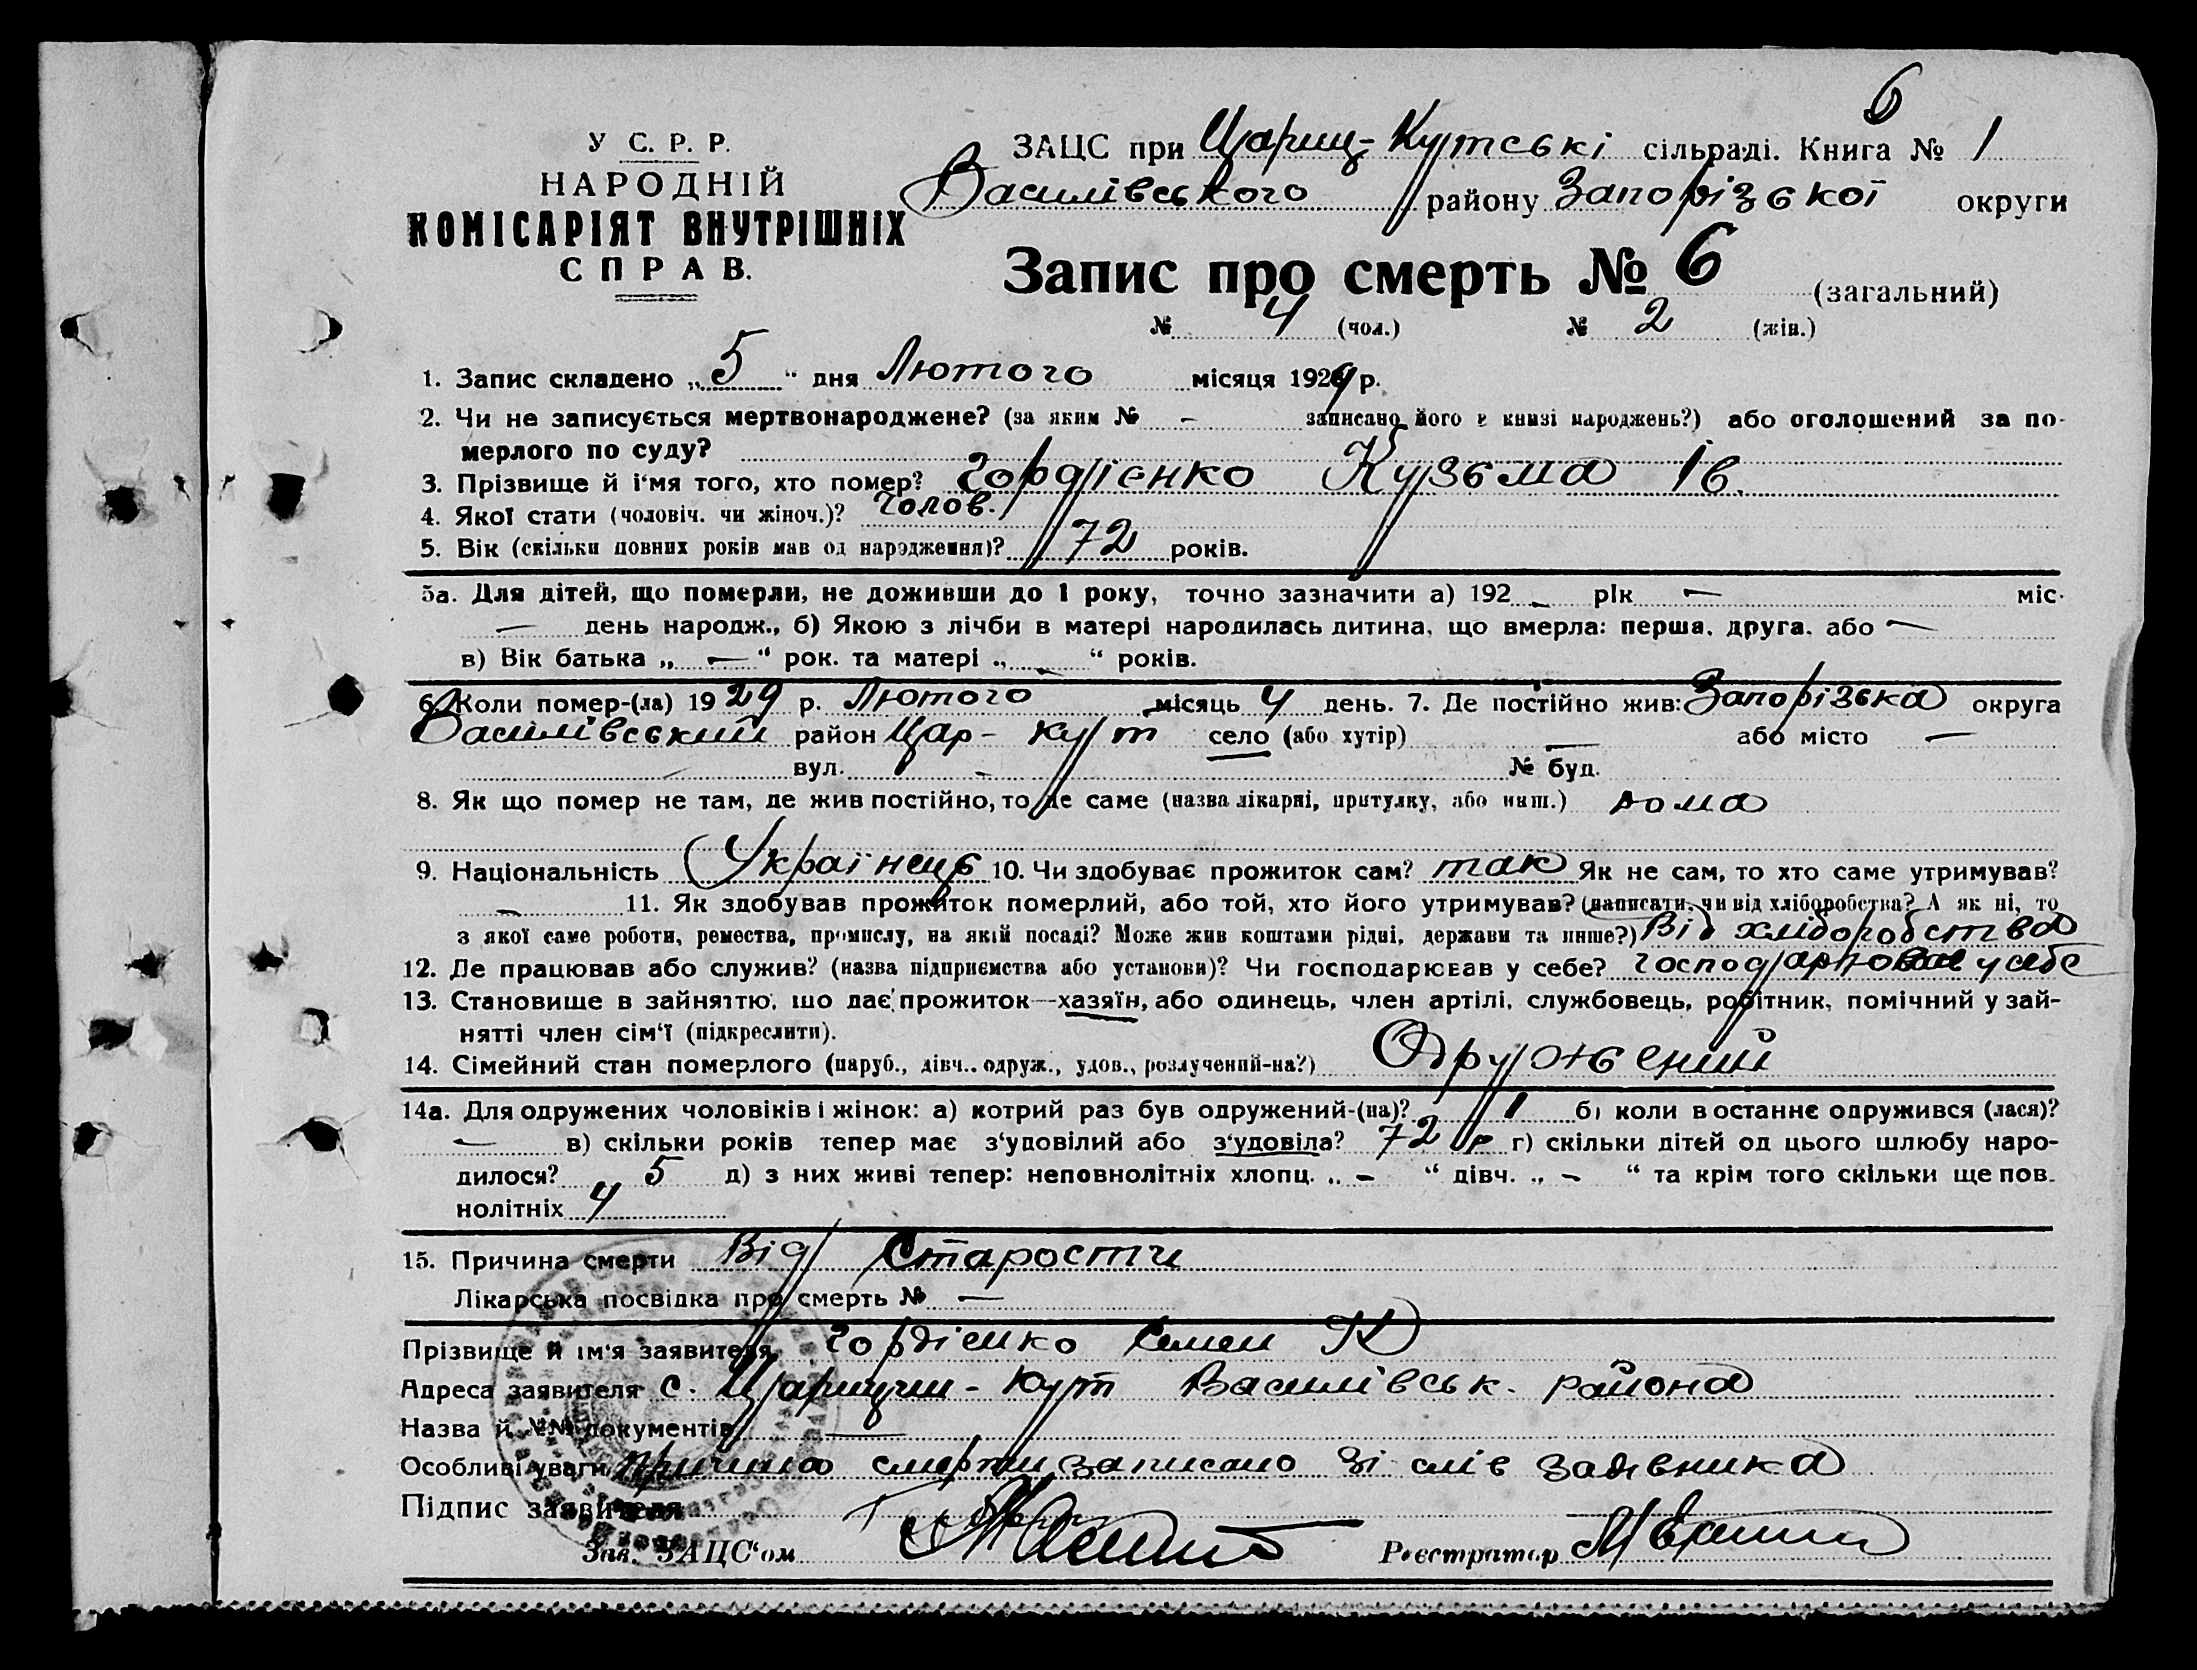 6
У С. Р. Р.
НАРОДНІЙ
КОМІСАРІЯТ ВНУТРІШНІХ
СПРАВ.
ЗАЦС при Цариц-Кутські сільраді. Книга № 1
Василівського району Запорізької округи
Запис про смерть № 6 (загальний)
№ 4 (чол.) № 2 (жін.)
1. Запис складено „5“ дня Лютого місяця 1929 р.
2. Чи не записується мертвонароджене? (за яким № - записано його в книзі народжень?) або оголошений за по-
мерлого по суду?
3. Прізвище й і'мя того, хто помер? Гордієнко Кузьма Ів.
4. Якої стати (чоловіч. чи жіноч.)? Чолов.
5. Вік (скільки повних років мав од народження)? 72 років.
5а. Для дітей, що померли, не доживши до 1 року, точно зазначити а) 192 - рік — міс.
— день народж., б) Якою з лічби в матері народилась дитина, що вмерла: перша, друга, або —
в) Вік батька „ — “ рок. та матері „ - “ років.
6. Коли помер-(ла) 1929 р. Лютого місяць 4 день. 7. Де постійно жив: Запорізька округа
Василівський район Цар-Кут село (або хутір) — або місто —
вул. - № буд.
8. Як що помер не там, де жив постійно, то де саме (назва лікарні, притулку, або инш.) дома
9. Національність Українець 10. Чи здобуває прожиток сам? так Як не сам, то хто саме утримував?
— 11. Як здобував прожиток померлий, або той, хто його утримував? (написати, чи від хліборобства? А як ні, то
з якої саме роботи, ремества, промислу, на якій посаді? Може жив коштами рідні, держави та инше?) Від хліборобства
12. Де працював або служив? (назва підприємства або установи)? Чи господарював у себе? господарював у себе
13. Становище в зайняттю, що дає прожиток—хазяїн, або одинець, член артілі, службовець, робітник, помічний у зай-
нятті член сім'ї (підкреслити).
14. Сімейний стан померлого (паруб., дівч., одруж., удов., розлучений-на?) Одружений
14а. Для одружених чоловіків і жінок: а) котрий раз був одружений-(на)? 1 б) коли в останнє одружився (лася)?
— в) скільки років тепер має з'удовілий або з'удовіла? 72 р г) скільки дітей од цього шлюбу наро-
дилося? 5 д) з них живі тепер: неповнолітніх хлопц. „ - “ дівч. „ - “ та крім того скільки ще пов-
нолітніх 4
15. Причина смерти Від Старости
Лікарська посвідка про смерть № —
Прізвище й ім'я заявителя Гордієнко Семен К
Адреса заявителя с. Царицин-Кут Василівськ. района
Назва й №№ документів —
Особливі уваги Причина смерти записано зі слів заявника
Підпис заявителя
Зав. ЗАЦС'ом Реєстратор